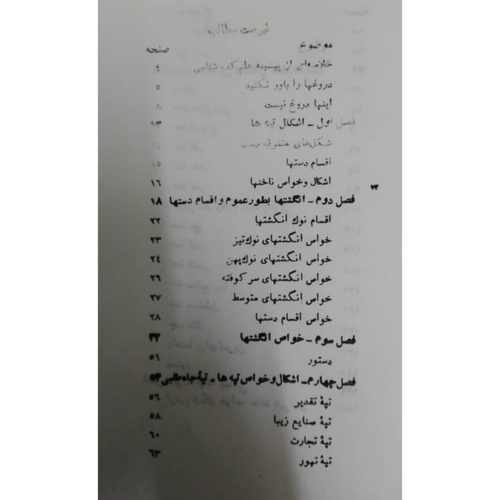 فهرست مطالب
موضوع صفحه
خلاصه‌ای از پیشینهٔ علم کف شناسی ٤
دروغها را باور نکنید ٥
اینها دروغ نیست ٨
فصل اول - اشکال تپه ها ١٣
شکل‌های متفرقه
اقسام دستها ١٥
اشکال وخواص ناخنها ١٦
فصل دوم - انگشتها بطور عموم و اقسام دستها ١٨
اقسام نوك انگشتها ٢٢
خواص انگشتهای نوك تیز ٢٣
خواص انگشتهای نوك پهن ٢٤
خواص انگشتهای سر کوفته ٢٦
خواص انگشتهای متوسط ٢٧
خواص اقسام دستها ٢٨
فصل سوم - خواص انگشتها ٣٢
دستور ٥١
فصل چهارم - اشکال وخواص تپه ها - تپهٔ جاه طلبی ٥٣
تپهٔ تقدیر ٥٦
تپهٔ صنایع زیبا ٥٨
تپهٔ تجارت ٦٠
تپهٔ تهور ٦٣